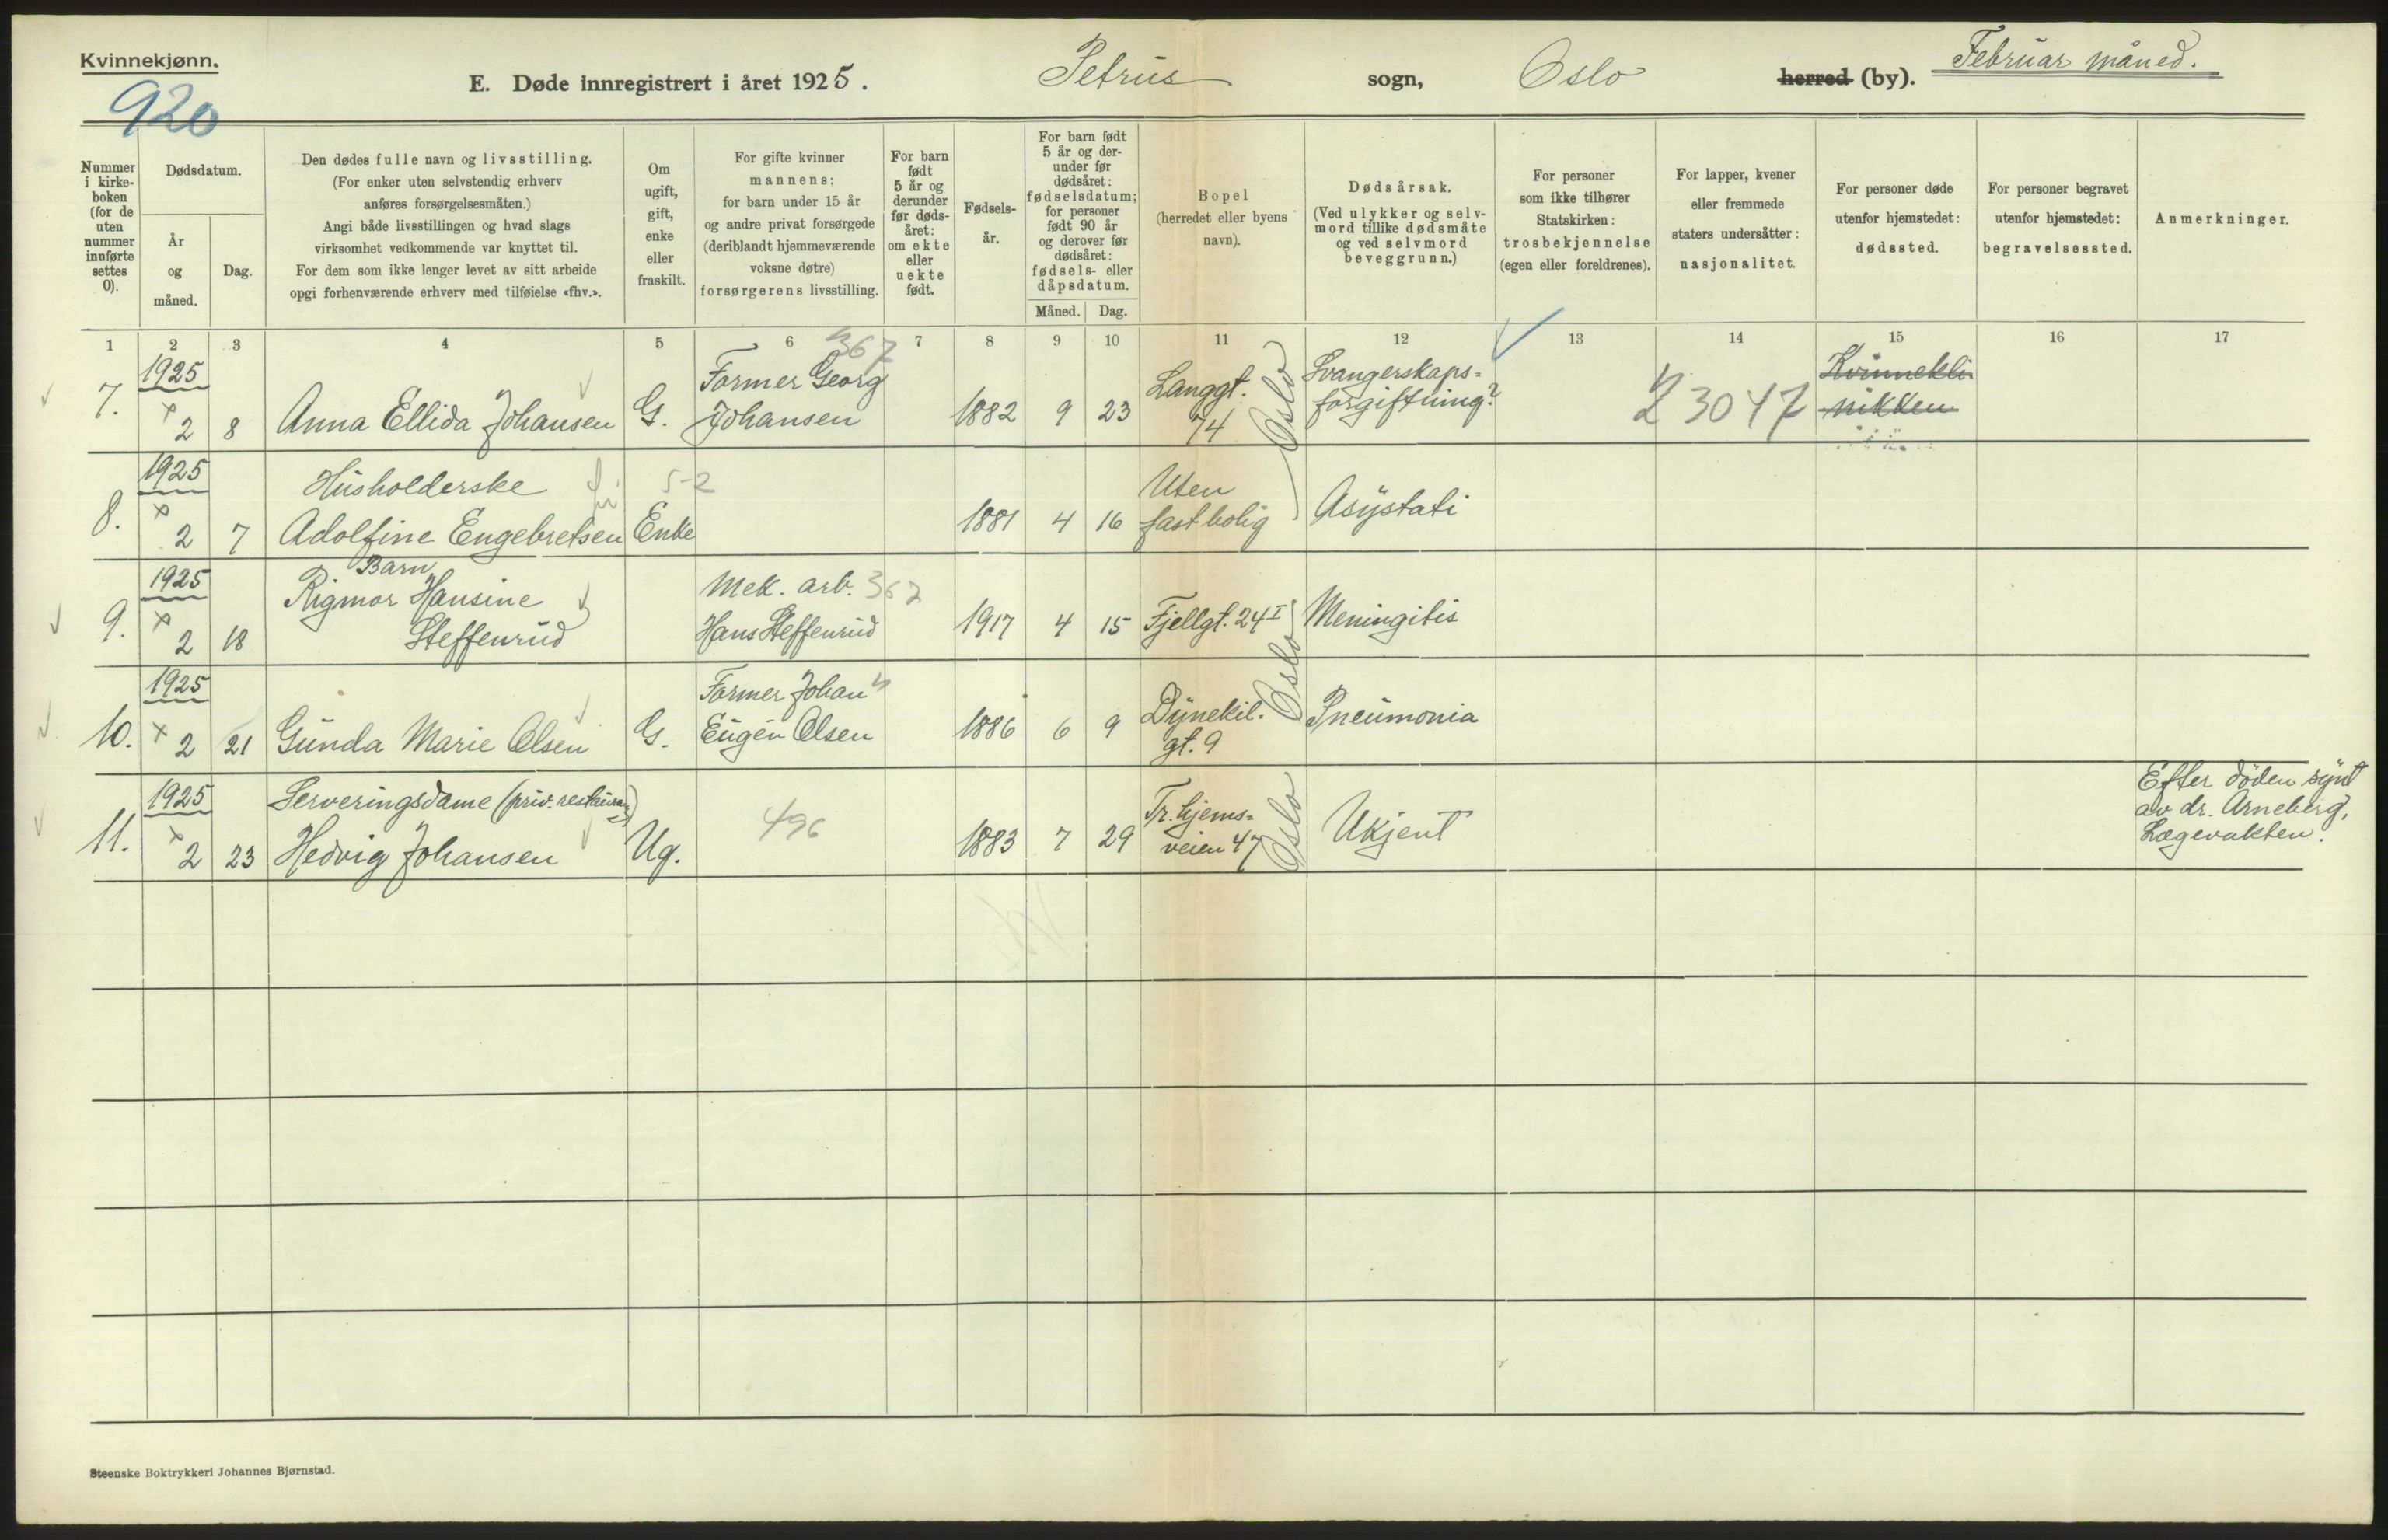 Kvinnekjønn.
920
E. Døde innregistrert i året 1925. Petrus sogn, Oslo herred (by). Februar måned.
Nummer i kirke- boken (for de uten nummer innførte settes 0).
Dødsdatum.
År og måned.
Dag.
Den dødes fulle navn og livsstilling.
(For enker uten selvstendig erhverv
anføres forsørgelsesmåten.)
Angi både livsstillingen og hvad slags
virksomhet vedkommende var knyttet til.
For dem som ikke lenger levet av sitt arbeide
opgi forhenværende erhverv med tilføielse «fhv.».
Om
ugift,
gift,
enke
eller
fraskilt.
For gifte kvinner
mannens;
for barn under 15 år
og andre privat forsørgede
(deriblandt hjemmeværende
voksne døtre)
forsørgerens livsstilling.
For barn
født
5 år og
derunder
før døds-
året:
om ekte
eller
uekte
født.
Fødsels-
år.
For barn født
5 år og der-
under før
dødsåret:
fødselsdatum;
for personer
født 90 år
og derover før
dødsåret:
fødsels- eller
dåpsdatum.
Måned. Dag.
Bopel
(herredet eller byens
navn).
Dødsårsak.
(Ved ulykker og selv-
mord tillike dødsmåte
og ved selvmord
beveggrunn.)
For personer
som ikke tilhører
Statskirken:
trosbekjennelse
(egen eller foreldrenes).
For lapper, kvener
eller fremmede
staters undersåtter:
nasjonalitet.
For personer døde
utenfor hjemstedet:
dødssted.
For personer begravet
utenfor hjemstedet:
begravelsessted.
Anmerkninger.
1 2 3 4 5 6 7 8 9 10 11 12 13 14 15 16 17
7. 1925 2 8 Anna Ellida Johansen G. Former Georg Johansen 367 1882 9 23 Langgt. 74 Oslo Svangerskaps= forgiftning? 23047 Kvinnekli nikken
8. 1925 2 7 Husholderske Adolfine Engebretsen Enke 52 1881 4 16 Uten fast bolig Asystati
9. 1925 2 18 Barn Rigmor Hansine Steffenrud Mek. arb. Hans Steffenrud 367 1917 4 15 Fjellgt. 24 I Oslo Meningitis
10. 1925 2 21 Gunda Marie Olsen G. Former Johan Eugen Olsen 1886 6 9 Dynekil. gt. 9 Pneumonia
11. 1925 2 23 Serveringsdame (priv. restaurant) Hedvig Johansen Ug. 496 1883 7 29 Tr.hjems= veien 47 Oslo Ukjent Efter døden synt av dr. Arneberg, Lægevakten.
Steenske Boktrykkeri Johannes Bjørnstad.